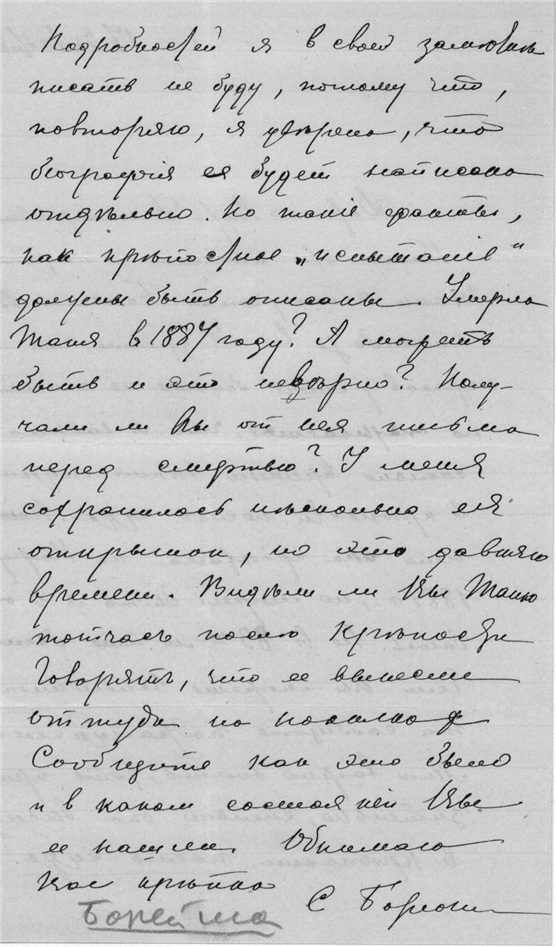 Подробностей я в своей заметке
писать не буду, потому что,
повторяю, я уверена, что
біографія ея будет написана
отдѣльно. Но такіе факты,
как крѣпостное „испытаніе"
должны быть описаны. Умерла
Таня в 1887 году? А может
быть и это невѣрно? Полу-
чали ли Вы от нея письма
перед смертью? У меня
сохранилось нѣсколько ея
открыток, но это давняго
времени. Видѣли ли Вы Таню
тотчас послѣ крѣпости
Говорят, что ее вынесли
оттуда на носилках
Сообщите как это было
и в каком состояніи Вы
ее нашли. Обнимаю
Вас крѣпко
С
Борейша